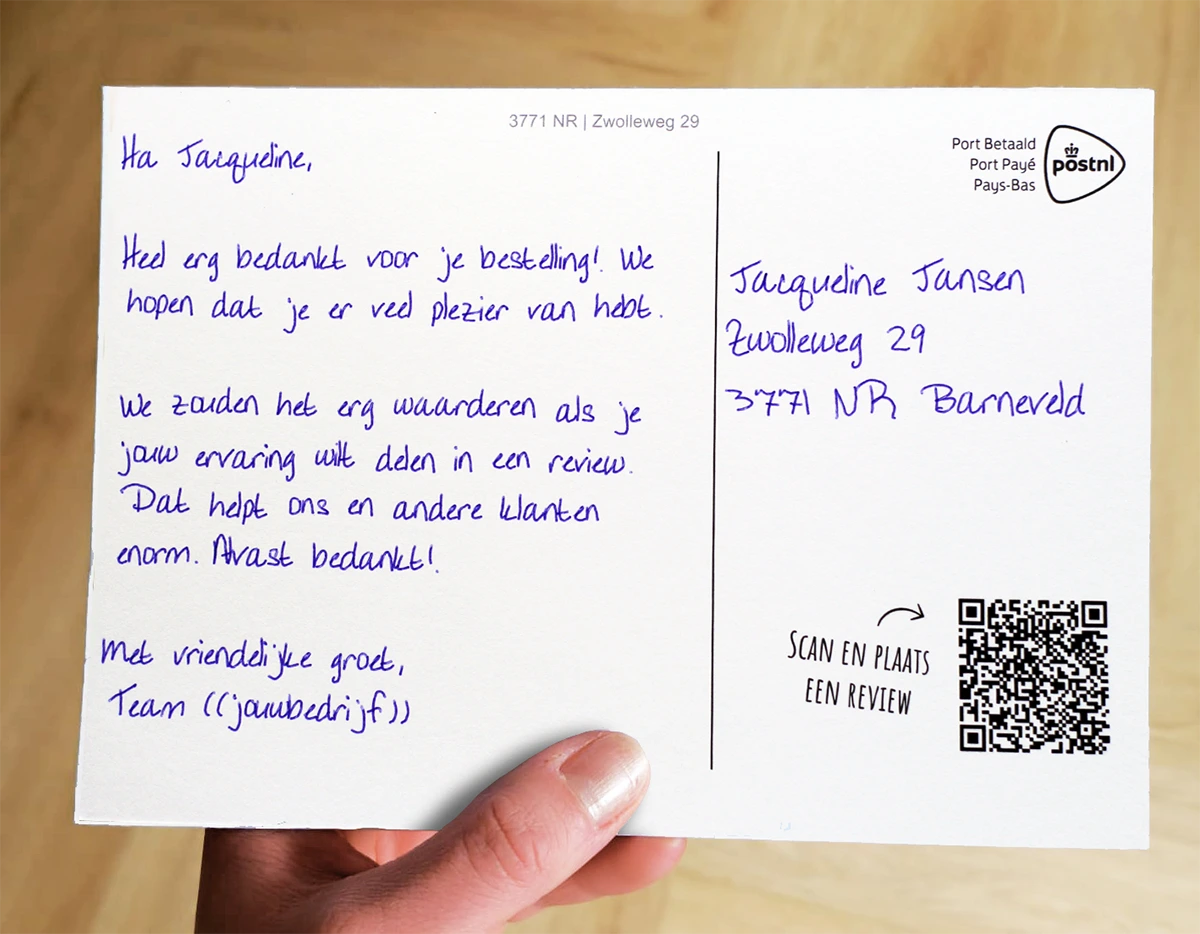 3771 NR | Zwolleweg 29
Ha Jacqueline,
Heel erg bedankt voor je bestelling! We
hopen dat je er veel plezier van hebt.
We zouden het erg waarderen als je
jouw ervaring wilt delen in een review.
Dat helpt ons en andere klanten
enorm. Alvast bedankt!
Met vriendelijke groet,
Team ((jouwbedrijf))
Port Betaald
Port Payé
Pays-Bas
postnl
Jacqueline Jansen
Zwolleweg 29
3771 NR Barneveld
SCAN EN PLAATS
EEN REVIEW